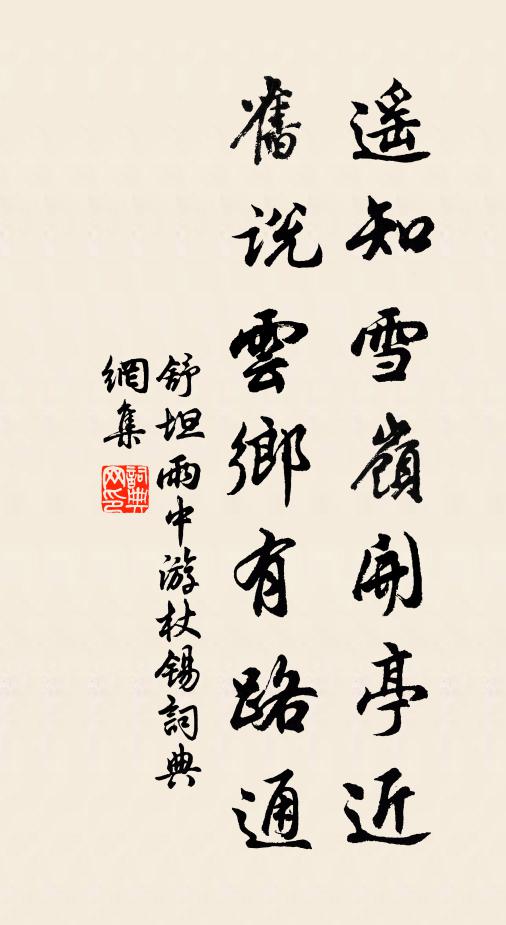 遥知雪嶺開亭近
舊説雲鄉有路通
舒坦雨中游杖锡詞典
網集
詞典
网印